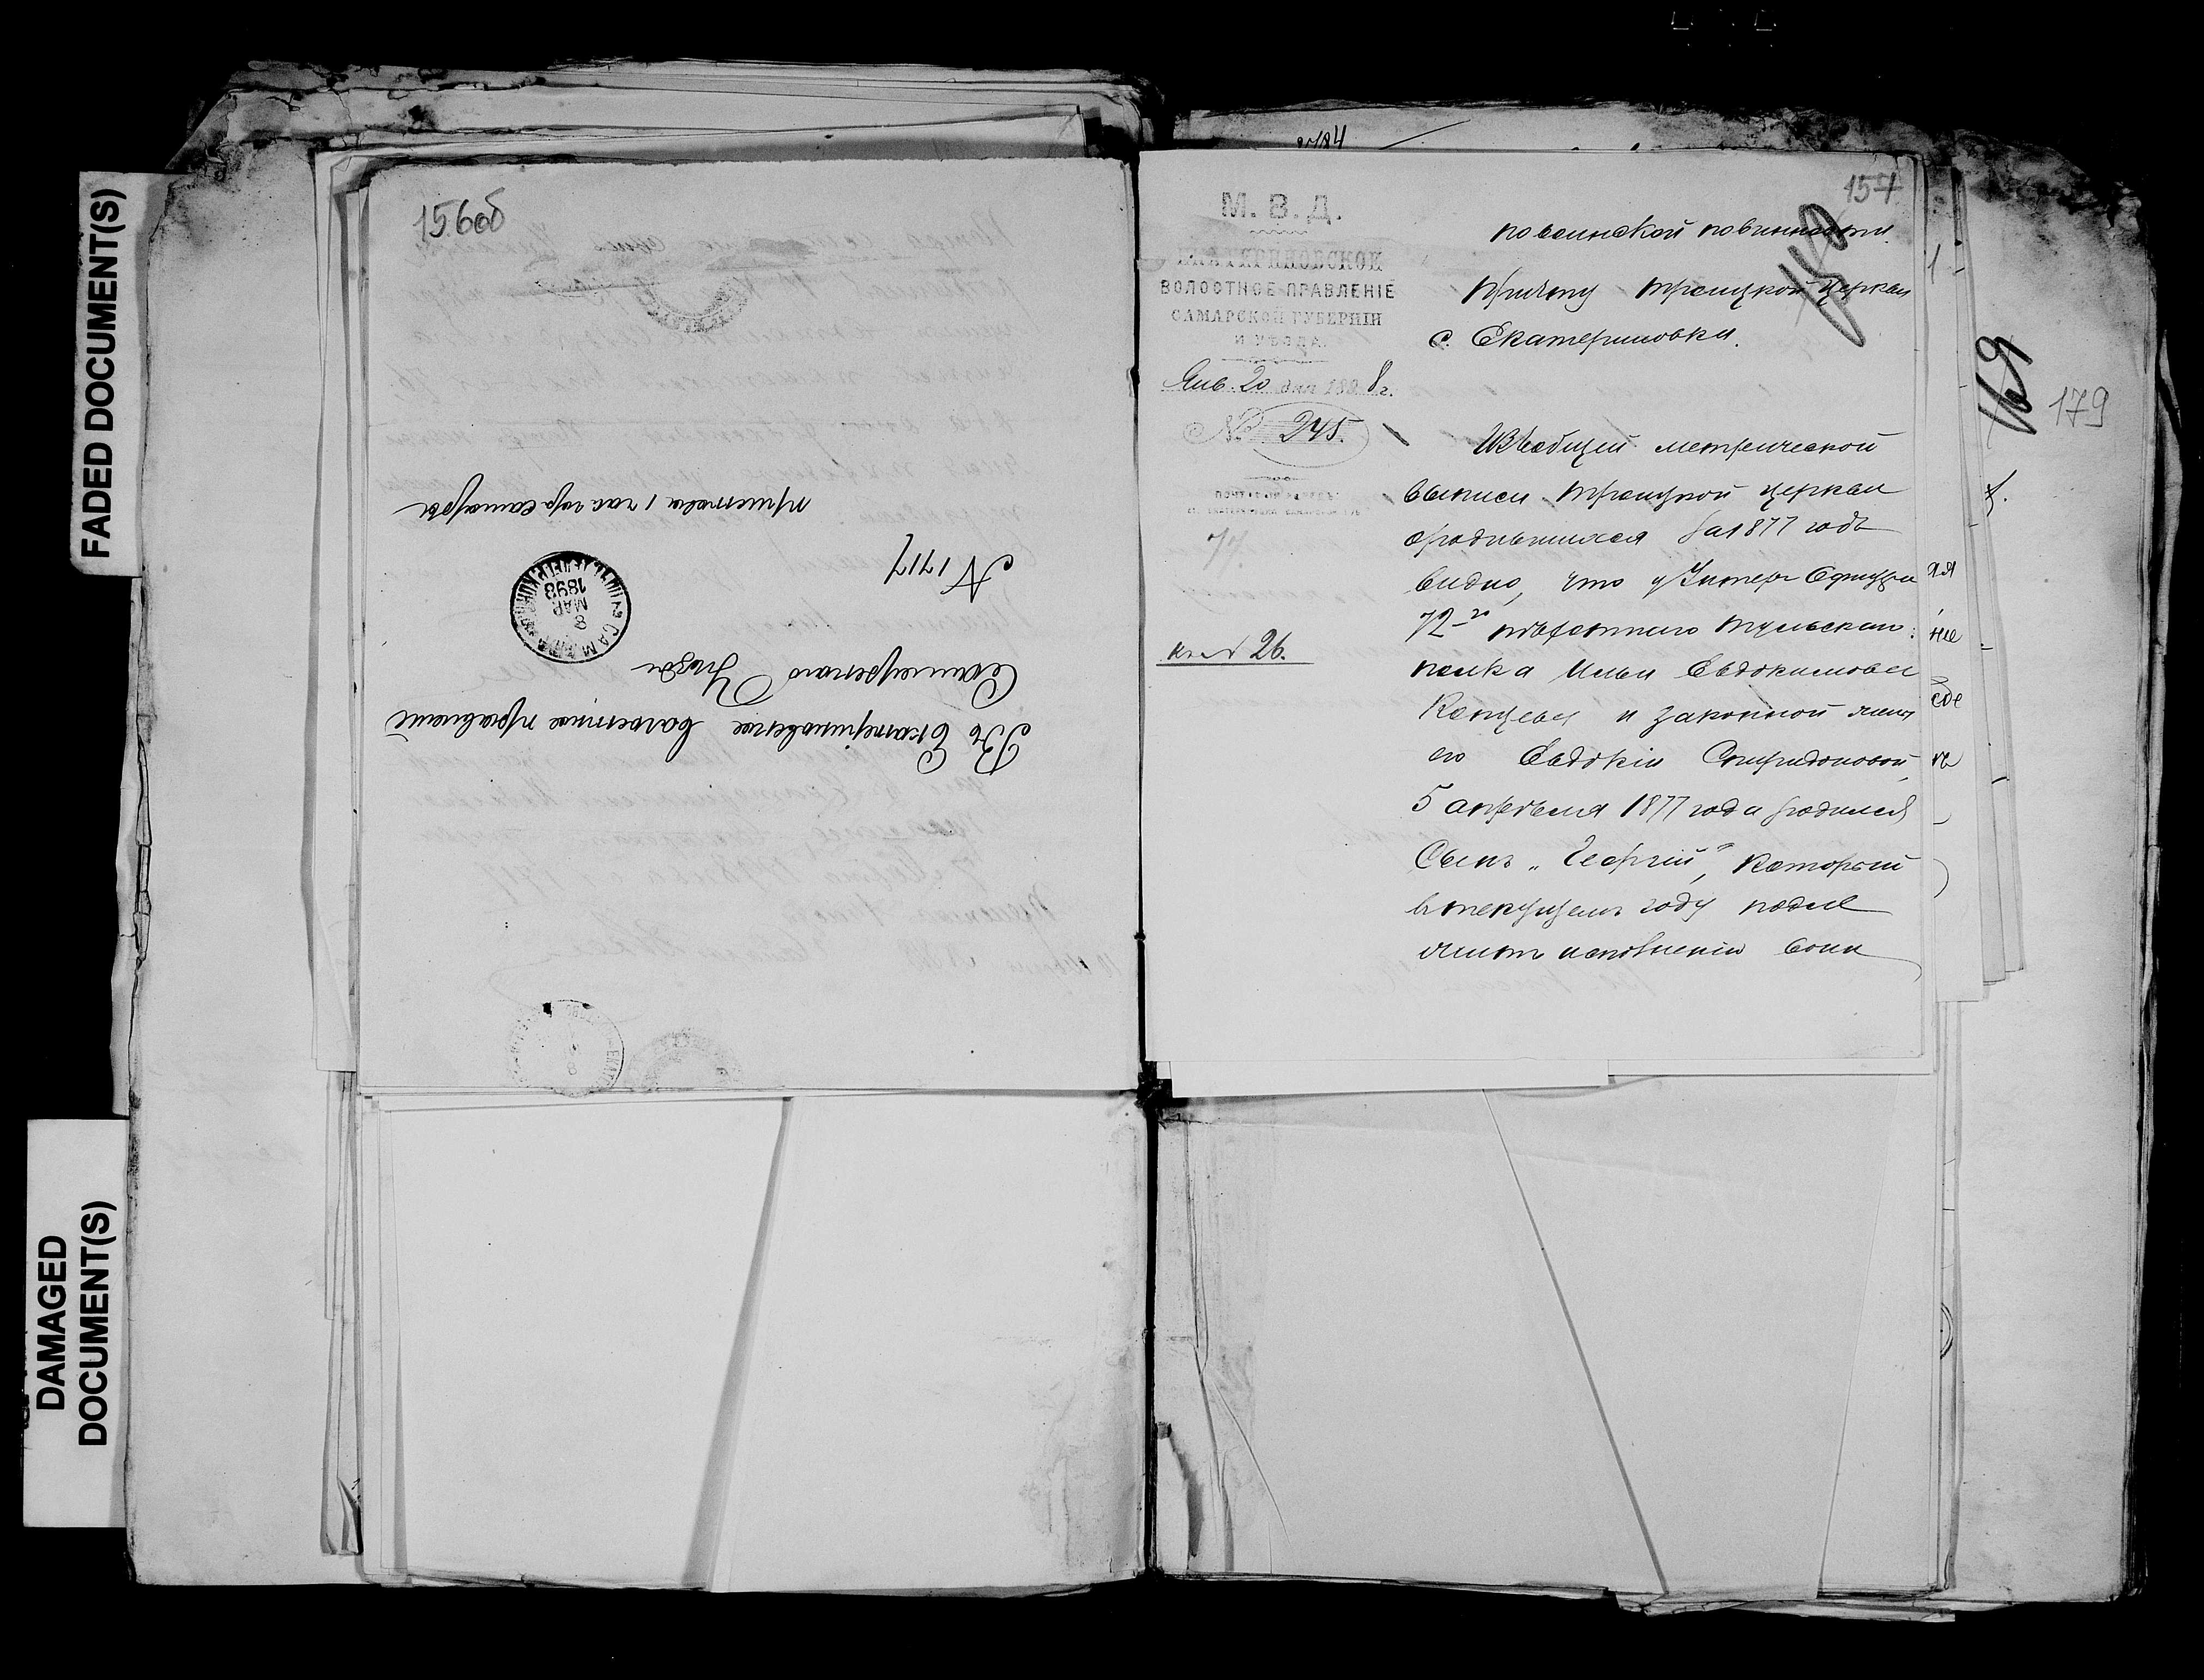 FADED DOCUMENT(S)
DAMAGED
DOCUMENT(S)
156об
Въ Екатериновское волостное правленіе
Самарскаго Уѣзда
САМАРА
8
МАР
1898
N 1717
пристава 1 час гор Самары
2484
157
М. В. Д.
ЕКАТЕРИНОВСКОЕ
ВОЛОСТНОЕ ПРАВЛЕНІЕ
САМАРСКОЙ ГУБЕРНІИ
И УѢЗДА.
Янв. 20 дня 1898 г.
№ 245.
77.
к. N 26.
по воинской повинности.
Причту Троицкой церкви
с. Екатериновки.
Изъ общей метрической
выписи Троицкой церкви
о родившихся за 1877 годъ
видно, что у Унтеръ Офицера
72го пѣхотнаго Тульскаго
полка Ильи Евдокимова
и законной жены
его Евдокіи Спиридоновой,
5 апрѣля 1877 года родился
Сынъ „Георгій", который
въ текущемъ году подле
житъ исполненію воин
169
179